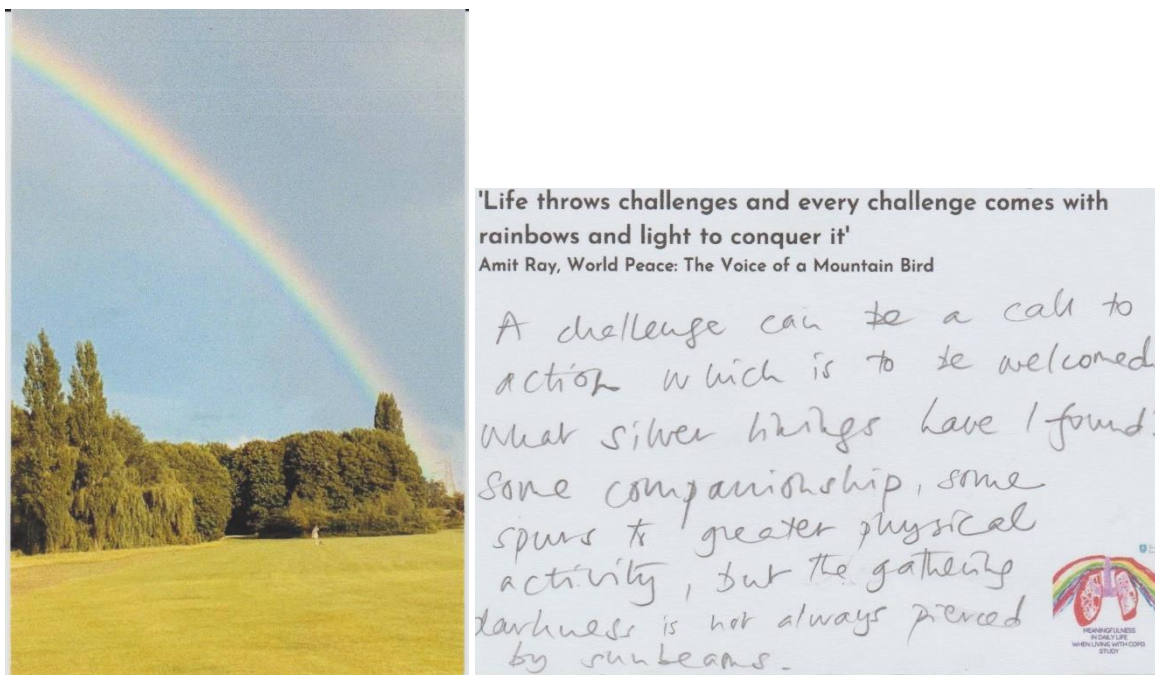 'Life throws challenges and every challenge comes with
rainbows and light to conquer it'
Amit Ray, World Peace: The Voice of a Mountain Bird
A challenge can be a call to
action which is to be welcomed
What silver linings have I found?
some companionship, some
spurs to greater physical
activity, but the gathering
darkness is not always pierced
by sunbeams.
MEANINGFULNESS
IN DAILY LIFE
WHEN LIVING WITH COPD
STUDY